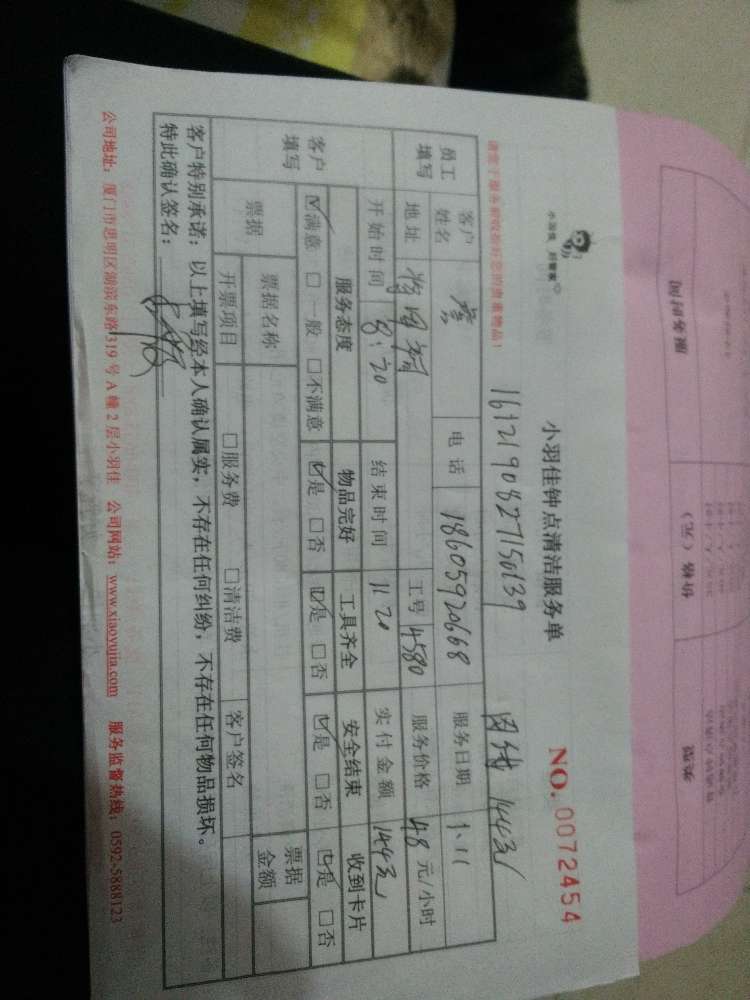 小羽佳 好管家
小羽佳钟点清洁服务单
NO. 0072454
请您于服务前收拾好您的贵重物品!
1612190827150139
144元
员工填写
客户姓名
电话 18605920668
服务日期 1.11
地址
工号 4580
服务价格 48 元/小时
开始时间 8:20
结束时间 11 20
实付金额 144元
客户填写
服务态度 物品完好 工具齐全 安全结束 收到卡片
☑满意 □一般 □不满意 ☑是 □否 ☑是 □否 ☑是 □否 ☑是 □否
票据
票据名称
票据金额
开票项目 □服务费 □清洁费 客户签名
客户特别承诺:以上填写经本人确认属实,不存在任何纠纷,不存在任何物品损坏。
特此确认签名:
公司地址:厦门市思明区湖滨东路319号A幢2层小羽佳 公司网站:www.xiaoyujia.com 服务监督热线:0592-5888123